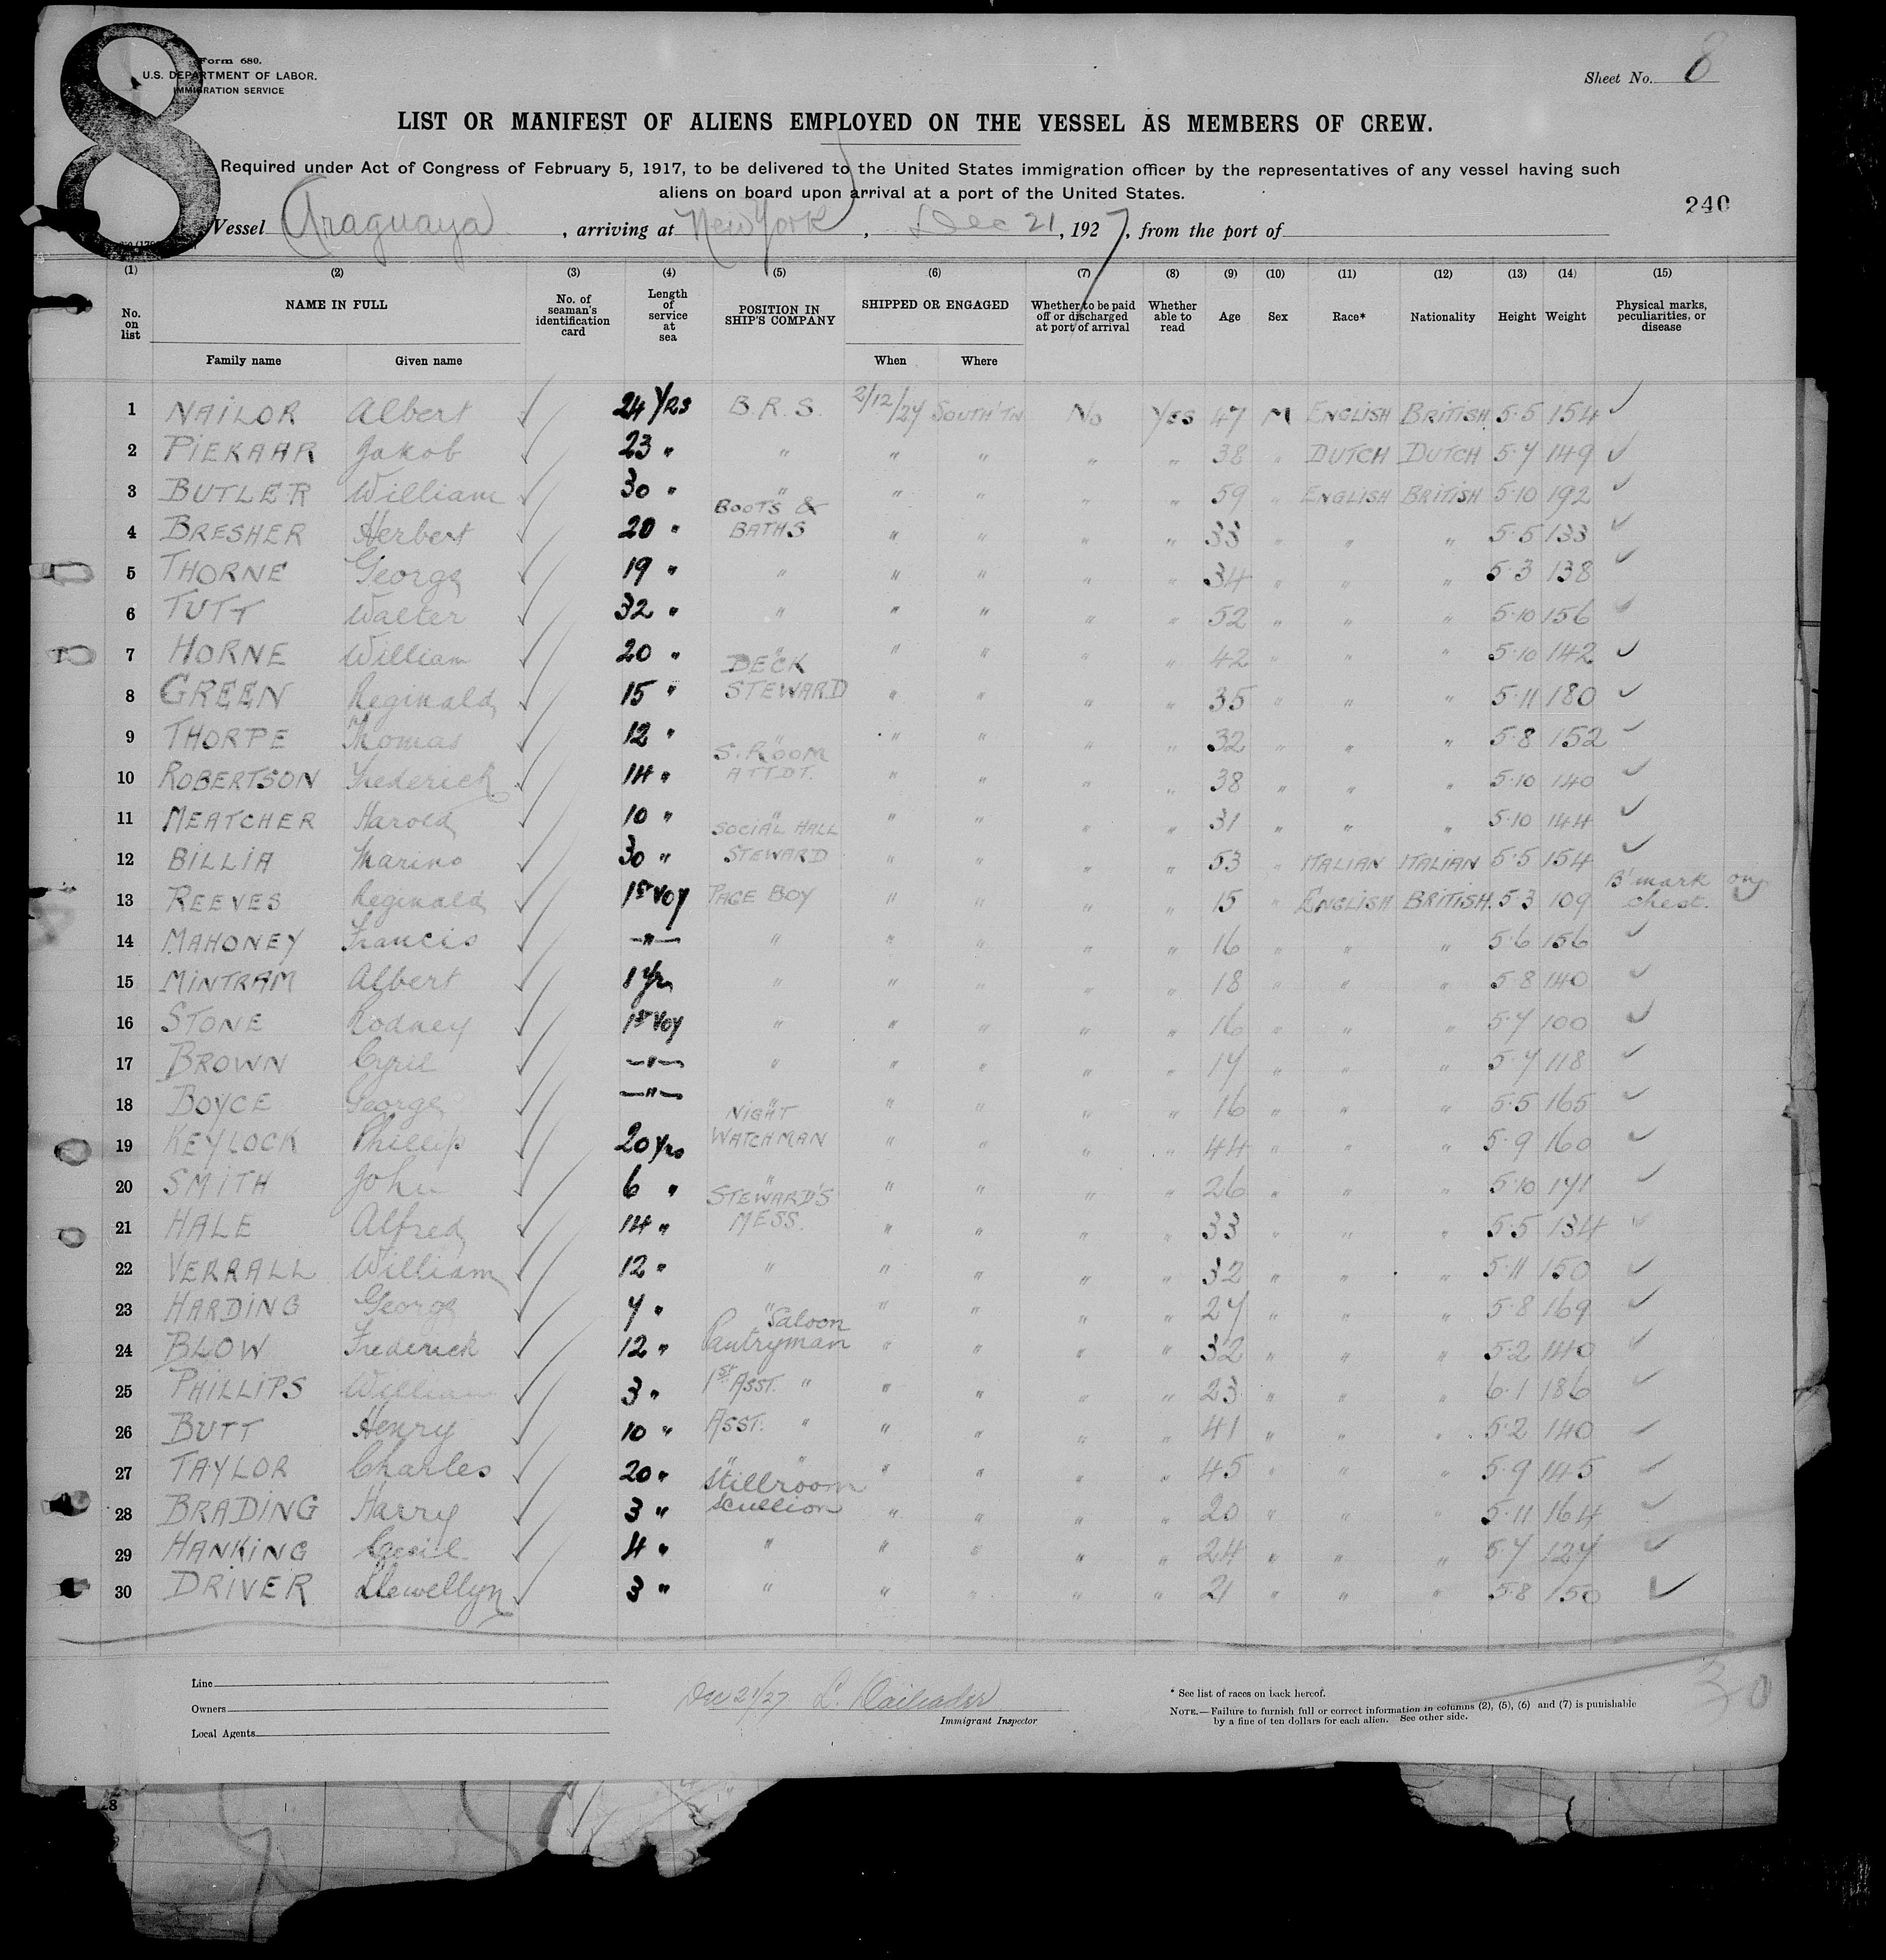 8
Form 680.
U.S. DEPARTMENT OF LABOR.
IMMIGRATION SERVICE
Sheet No. 8
LIST OR MANIFEST OF ALIENS EMPLOYED ON THE VESSEL AS MEMBERS OF CREW.
Required under Act of Congress of February 5, 1917, to be delivered to the United States immigration officer by the representatives of any vessel having such
aliens on board upon arrival at a port of the United States.
240
Vessel Araguaya, arriving at New York, Dec 21, 1927, from the port of
(1) (2) (3) (4) (5) (6) (7) (8) (9) (10) (11) (12) (13) (14) (15)
No. on list NAME IN FULL No. of seaman's identification card Length of service at sea POSITION IN SHIP'S COMPANY SHIPPED OR ENGAGED Whether to be paid off or discharged at port of arrival Whether able to read Age Sex Race* Nationality Height Weight Physical marks, peculiarities, or disease
Family name Given name When Where
1 NAILOR Albert 24 Yrs B.R.S. 2/12/27 SOUTH'TN No Yes 47 M ENGLISH BRITISH 5·5 154
2 PIEKAAR Jakob 23 " " " " " " 38 " DUTCH DUTCH 5·7 149
3 BUTLER William 30 " " " " " " 59 " ENGLISH BRITISH 5·10 192
4 BRESHER Herbert 20 " BOOTS & BATHS " " " " 33 " " " 5·5 133
5 THORNE George 19 " " " " " " 34 " " " 5·3 138
6 TUTT Walter 32 " " " " " " 52 " " " 5·10 156
7 HORNE William 20 " " " " " " 42 " " " 5·10 142
8 GREEN Reginald 15 " DECK STEWARD " " " " 35 " " " 5·11 180
9 THORPE Thomas 12 " " " " " " 32 " " " 5·8 152
10 ROBERTSON Frederick 14 " S. ROOM ATTDT. " " " " 38 " " " 5·10 140
11 MEATCHER Harold 10 " " " " " " 31 " " " 5·10 144
12 BILLIA Marino 30 " SOCIAL HALL STEWARD " " " " 53 " ITALIAN ITALIAN 5·5 154
13 REEVES Reginald 1st Voy PAGE BOY " " " " 15 " ENGLISH BRITISH. 5·3 109 B'mark on chest.
14 MAHONEY Francis " " " " " " 16 " " " 5·6 156
15 MINTRAM Albert 1 yr " " " " " 18 " " " 5·8 140
16 STONE Rodney 1st Voy " " " " " 16 " " " 5·7 100
17 BROWN Cyril " " " " " " 17 " " " 5·7 118
18 BOYCE George " " " " " " 16 " " " 5·5 165
19 KEYLOCK Phillip 20 yrs NIGHT WATCHMAN " " " " 44 " " " 5·9 160
20 SMITH John 6 " " " " " " 26 " " " 5·10 171
21 HALE Alfred 14 " STEWARD'S MESS. " " " " 33 " " " 5·5 134
22 VERRALL William 12 " " " " " " 32 " " " 5·11 150
23 HARDING George 7 " " " " " " 27 " " " 5·8 169
24 BLOW Frederick 12 " Saloon Pantryman " " " " 32 " " " 5·2 140
25 PHILLIPS William 3 " 1ST ASST. " " " " " 23 " " " 6·1 186
26 BUTT Henry 10 " ASST. " " " " " 41 " " " 5·2 140
27 TAYLOR Charles 20 " " " " " " " 45 " " " 5·9 145
28 BRADING Harry 3 " Stillroom Scullion " " " " 20 " " " 5·11 164
29 HANKING Cecil 4 " " " " " " 24 " " " 5·7 127
30 DRIVER Llewellyn 3 " " " " " " 21 " " " 5·8 150
Line
Owners
Local Agents
Dec 21/27 L.
Immigrant Inspector
* See list of races on back hereof.
NOTE.—Failure to furnish full or correct information in columns (2), (5), (6) and (7) is punishable
by a fine of ten dollars for each alien. See other side.
30
28